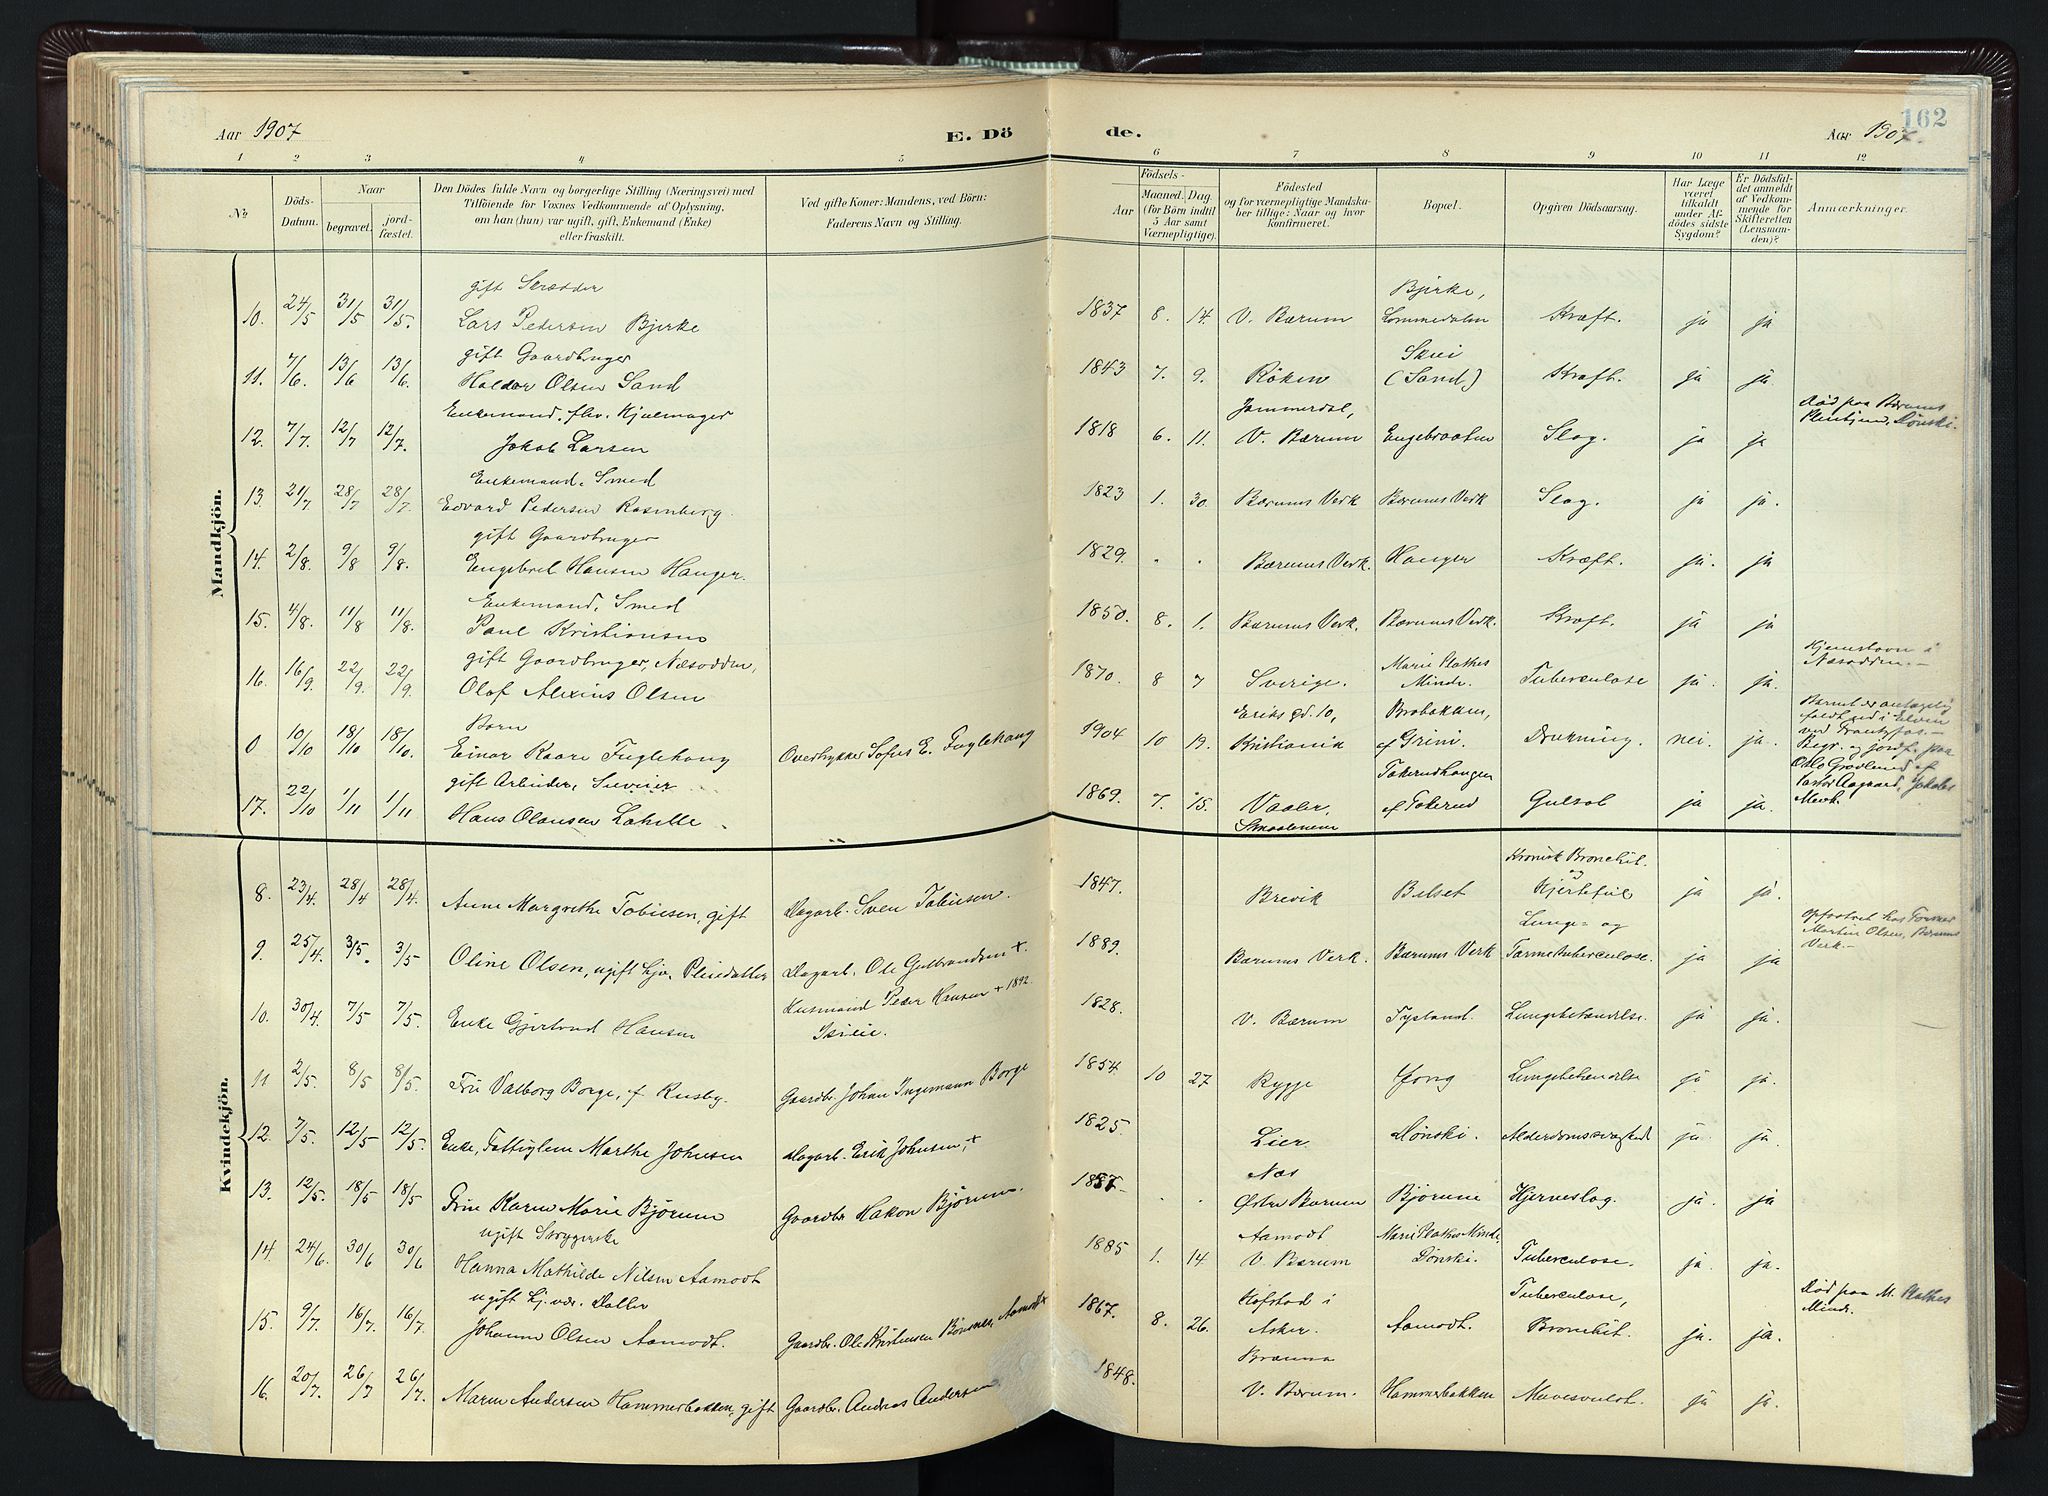 Aar 1907
E. Dö
de.
162
Aar 1907.
1 2 3 4 5 6 7 8 9 10 11 12
No
Döds-Datum.
Naar
begravet.
jord-fæstet.
Den Dödes fulde Navn og borgerlige Stilling (Næringsvei) med
Tilföiende for Voxnes Vedkommende af Oplysning,
om han (hun) var ugift, gift, Enkemand (Enke)
eller fraskilt.
Ved gifte Koner: Mandens, ved Börn:
Faderens Navn og Stilling.
Födsels-
Aar
Maaned. Dag.
(for Börn indtil
5 Aar samt
Værnepligtige).
Födested
og for værnepligtige Mandska-
ber tillige: Naar og hvor
konfirmeret.
Bopæl.
Opgiven Dödsaarsag.
Har Læge
været
tilkaldt
under Af-
dödes sidste
Sygdom?
Er Dödsfal-
det anmeldt
af Vedkom-
mende for
Skifteretten
(Lensman-
den)?
Anmærkninger.
Mandkjön.
gift Skrædder Bjerke,
10. 24/5 31/5 31/5. Lars Pedersen Bjerke 1837 8. 14. V. Bærum Lommedalen Kræft. ja ja
gift Gaardbruger Skui
11. 7/6. 13/6 13/6. Haldor Olsen Sand 1843 7. 9. Röken (Sand) Kræft. ja ja.
Enkemand, flv. Hjulmager Jammerdal, Död paa Bærums
12. 7/7. 12/7 12/7. Jakob Larsen 1818 6. 11. V. Bærum Engebraaten Slag. ja ja Pleiehjem, Dønski.
Enkemand. Smed
13. 21/7 28/7 28/7. Edvard Pedersen Rosenberg. 1823 1. 30. Bærums Verk Bærums Verk Slag. ja ja.
gift Gaardbruger
14. 2/8. 9/8 9/8. Engebret Hansen Hauger. 1829. " " Bærums Verk. Hauger Kræft. ja. ja
Enkemand. Smed
15. 4/8. 11/8 11/8. Paul Kristiansen 1850. 8. 1. Bærums Verk. Bærums Verk. Kræft. ja ja
gift Gaardbruger, Næsodden, Marie Plathes Hjemstavn i
16. 16/9 22/9. 22/9. Olaf Alexius Olsen 1870. 8 7 Sverige. Minde. Tuberculose ja. ja. Næsodden.-
Barn Eriks gd. 10, Brobakken, Barnet er antagelig
0 10/10 18/10 18/10. Einar Kaare Fuglehaug Overbykker Sofus E. Fuglehaug 1904 10 19. Kristiania af Grini. Drukning. nei. ja.
faldt ud i Elven
ved Grantofos.-
Begr. og jordf. paa
Oslo Gravlund af
Pastor Aagaard, Jakobs
Menh.
gift Arbeider, Takerudhaugen
17. 22/10 1/11 1/11 Hans Olausen Lakille 1869. 7. 15. Vaaler, Smaalenene af Takerud Gulsot ja ja.
Kvindekjön.
Kronisk Bronchit.
8. 23/4. 28/4 28/4. Anne Margrethe Tobiesen, gift Dagarb. Sven Tobiesen. 1847. Brevik Belset Hjertefeil ja ja.
Lunge- og opfostret hos Former
9. 25/4. 3/5. 3/5 Oline Olsen, ugift Dagarb. Ole Gulbrandsen +. 1889. Bærums Verk. Bærums Verk Tarmetuberculose. ja ja Martin Olsen, Bærums Verk.-
Husmand Peder Hansen + 1892
10. 30/4. 7/5 7/5. Enke Gjertrud Hansen 1828. V. Bærum Tysland. Lungebetændelse. ja ja.
11 2/5. 8/5 8/5. Fru Valborg Borge, f. Rusby. Gaardbr. Johan Ingemann Borge 1854. 10 27 Rygge Jong Lungebetændelse ja ja.
12. 7/5. 12/5 12/5. Enke, Fattiglem Marthe Johnsen Dagarb. Erik Johnsen, + 1825. Lier. Dönski. Alderdomssvaghed ja. ja.
Næs
13. 12/5. 18/5 18/5. Fru Karen Marie Bjørum Gaardbr Hakon Bjørum. 1837 " " Østre Bærum Bjørum Hjerneslag. ja. ja
ugift Strygerske Aamodt Marie Plathes Minde,
14. 24/6. 30/6 30/6 Hanna Mathilde Nilsen Aamodt 1885 1. 14 V. Bærum Dönski. Tuberculose. ja. ja.
ugift hj.vær. Datter Hofstad i Tuberculose, Död paa M. Plathes
15. 9/7. 16/7. 16/7. Johanne Olsen Aamodt. Gaardbr. Ole Kristensen Aamodt 1867. 8. 26. Asker. Aamodt. Bronchit. ja. ja. Minde.
Brænna
16. 20/7. 26/7 26/7. Maren Andersen Hammerbakken, gift Gaardbr. Andreas Andersen 1848. V. Bærum. Hammerbakken Mavesvulst. ja ja.